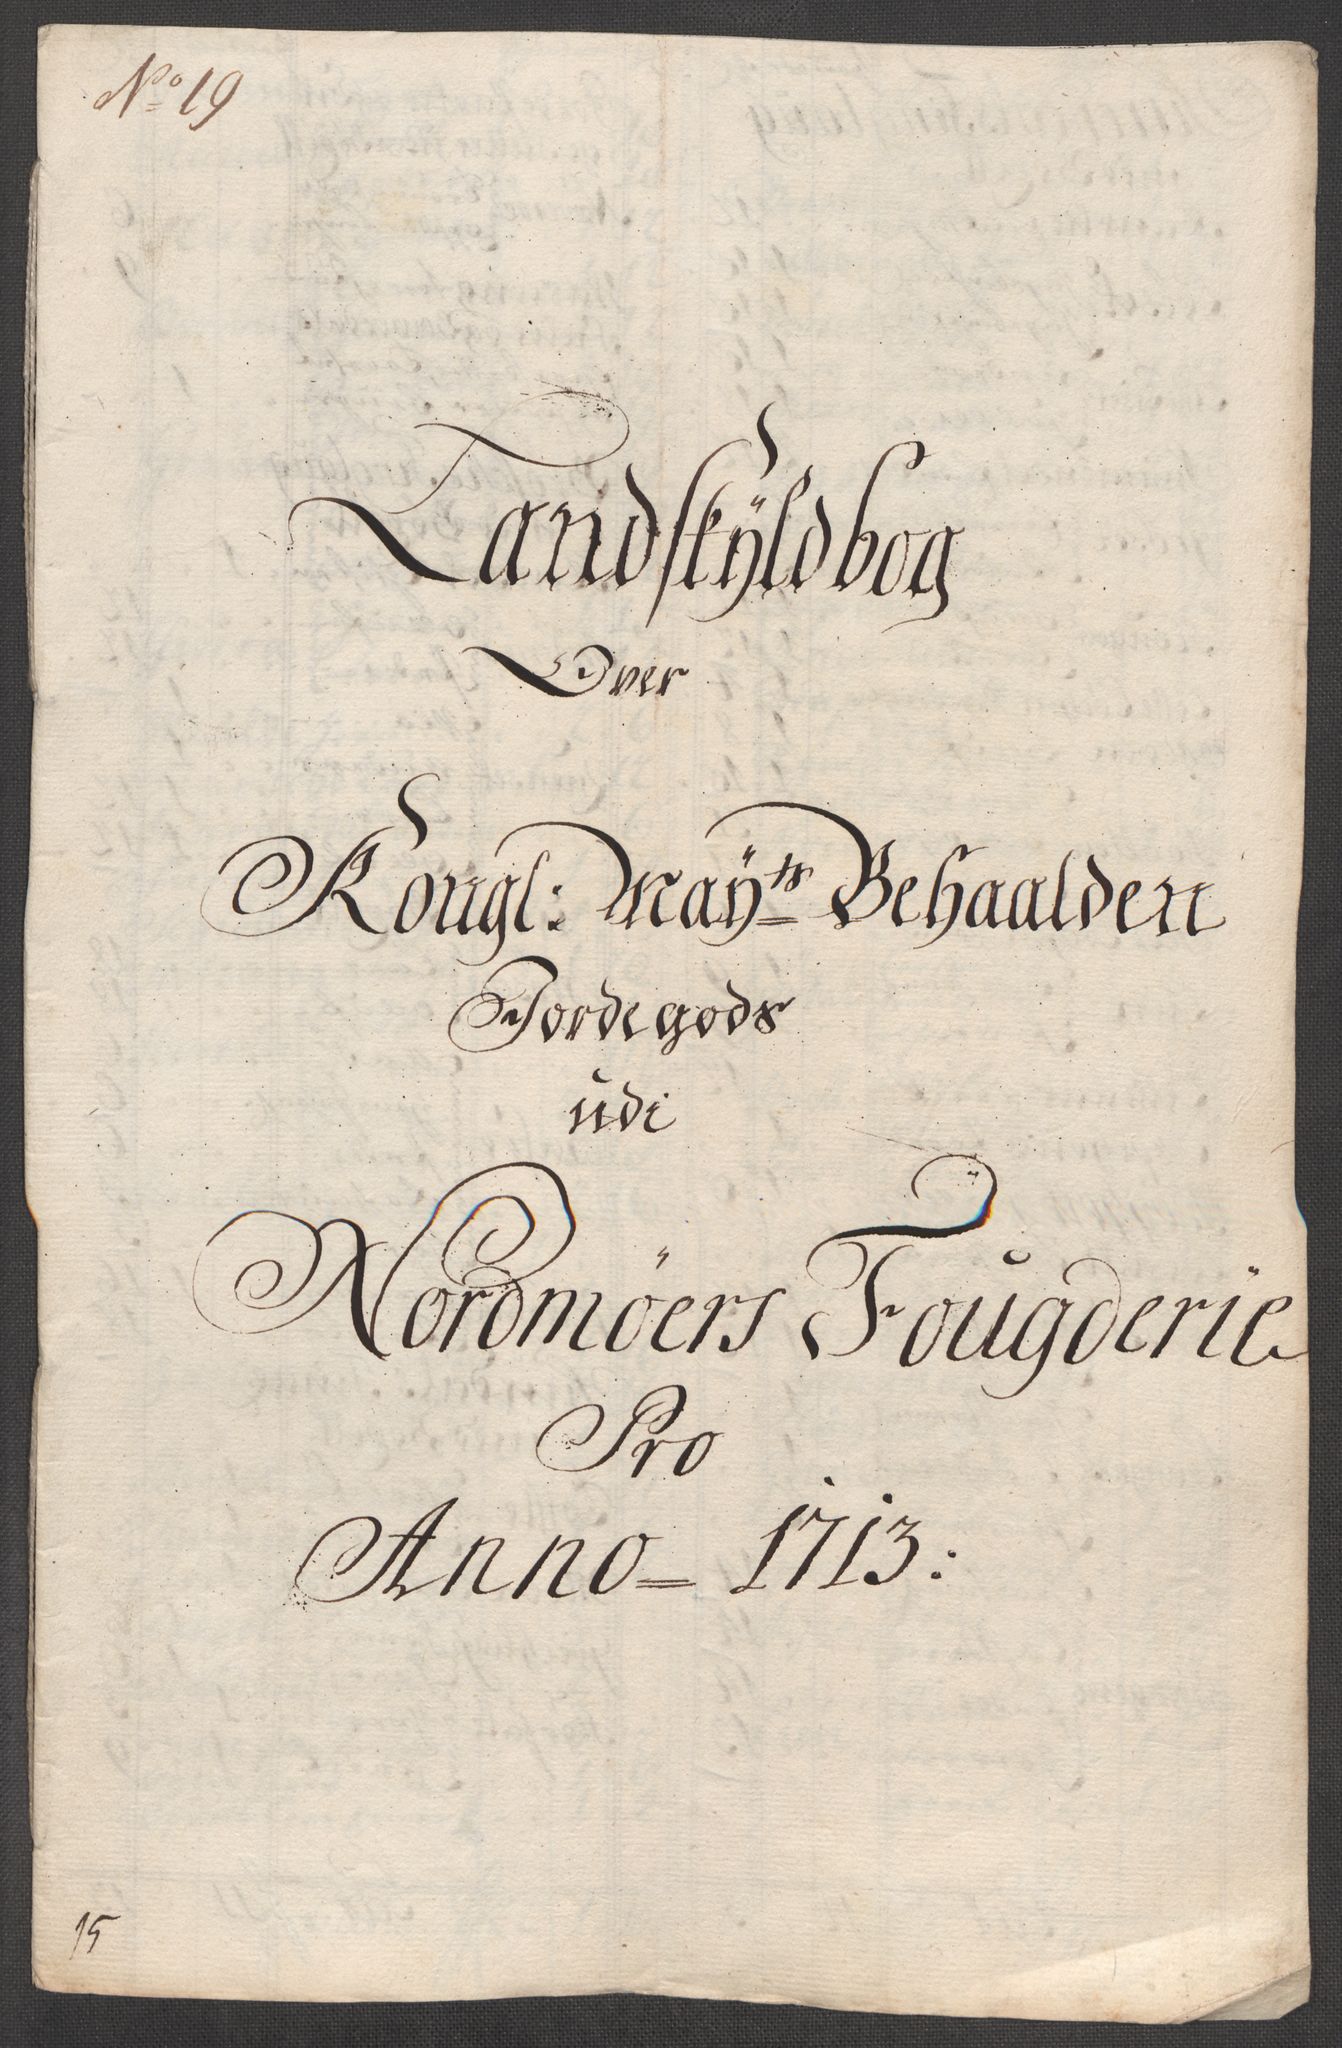 No 19
Landskÿldbog
Over
Kongl: Maÿts Behaalden
Jordegods
udi
Nordmöers Fougderie
Pro
Anno 1713:
15